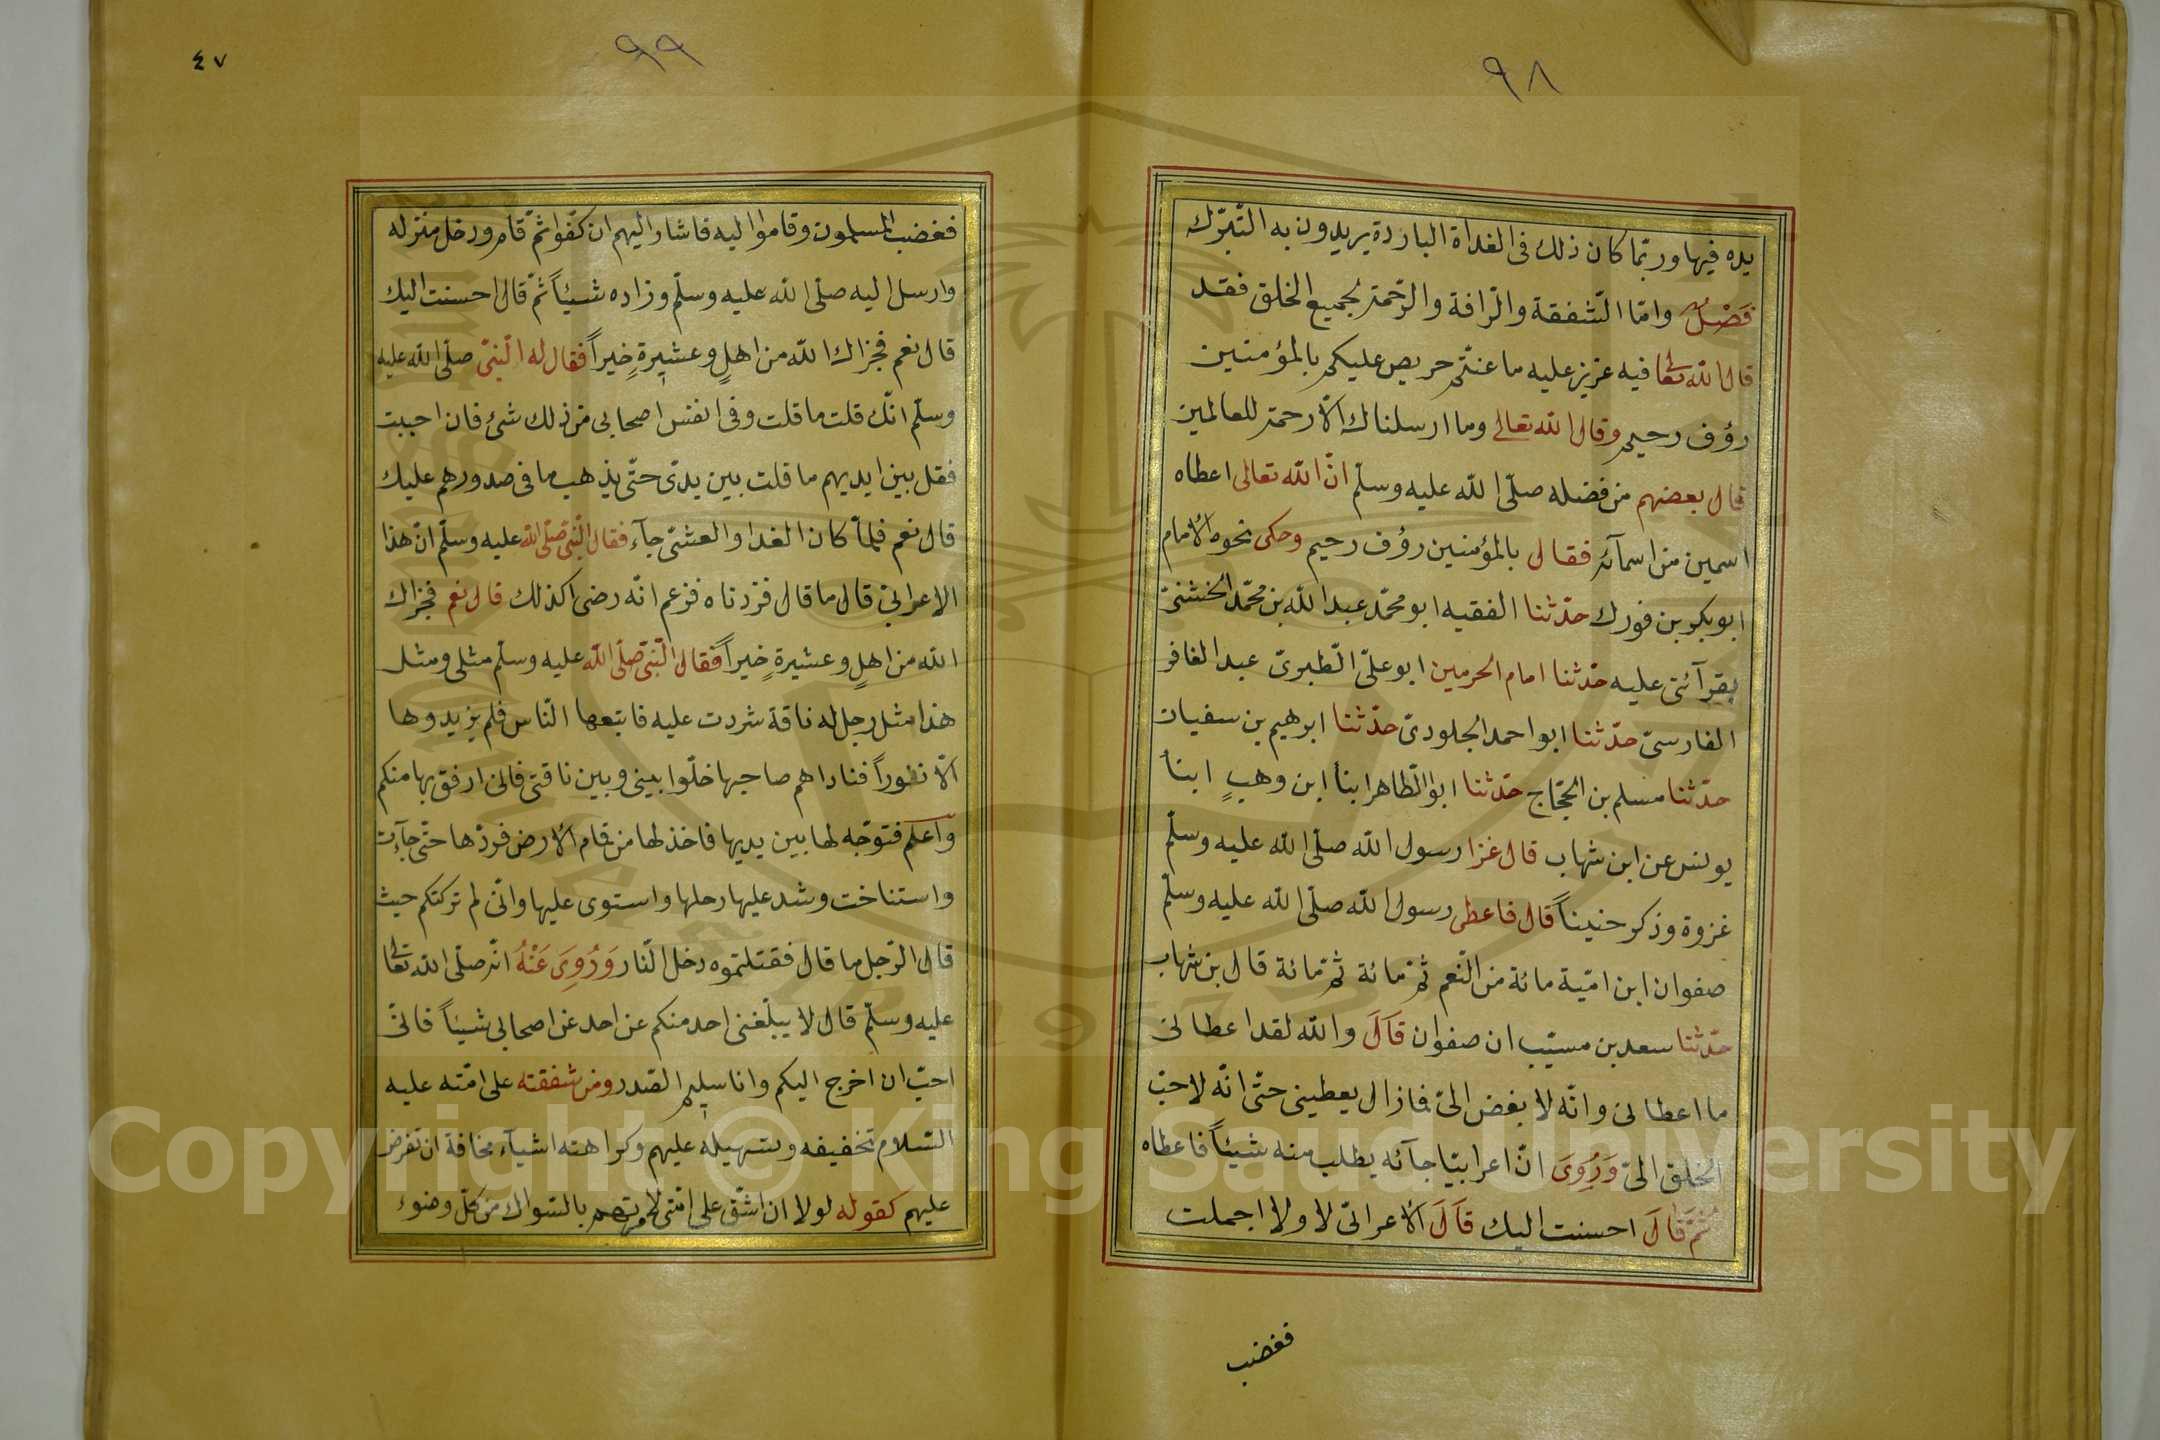 ٩٨
يده فيها وربّما كان ذلك فى الغداة الباردة يريدون به التّبرّك
فَصْلٌ وامّا الشّفقة والرّافة والرّحمة لجميع الخلق فقد
قال الله تعالى فيه عزيز عليه ما عنتّم حريص عليكم بالمؤمنين
رؤف رحيم وقال الله تعالى وما ارسلناك الاّ رحمة للعالمين
قال بعضهم من فضله صلّى الله عليه وسلّم انّ الله تعالى اعطاه
اسمين من اسمآئه فقال بالمؤمنين رؤف رحيم وحكى نحوه الامام
ابو بكر بن فورك حدّثنا الفقيه ابو محمّد عبد الله بن محمّد الخشنىّ
بقرآئتى عليه حدّثنا امام الحرمين ابو علىّ الطّبرىّ عبد الغافر
الفارسىّ حدّثنا ابو احمد الجلودىّ حدّثنا ابرهيم بن سفيان
حدّثنا مسلم بن الحجّاج حدّثنا ابو الطّاهر ابنأ ابن وهبٍ ابنأ
يونس عن ابن شهاب قال غزا رسول الله صلّى الله عليه وسلّم
غزوة وذكر حنيناً قال فاعطى رسول الله صلّى الله عليه وسلّم
صفوان ابن اميّة مائة من النّعم ثمّ مائة ثمّ مائة قال بن شهاب
حدّثنا سعد بن مسيّب ان صفوان قَالَ والله لقد اعطانى
ما اعطانى وانّه لابغض الىّ فمازال يعطينى حتّى انّه لاحبّ
الخلق الىّ وَرُوِىَ انّ اعرابيّا جآئه يطلب منه شيئاً فاعطاه
ثُمَّ قَالَ احسنت اليك قَالَ الاعرابىّ لا ولا اجملت
فغضب
٩٩
٤٧
فغضب المسلمون وقاموا اليه فاشار اليهم ان كفّوا ثمّ قام ودخل منزله
وارسل اليه صلّى الله عليه وسلّم وزاده شيئاً ثمّ قال احسنت اليك
قال نعم فجزاك الله من اهلٍ وعشيرةٍ خيراً فقال له النّبىّ صلّى الله عليه
وسلّم انّك قلت ما قلت وفى انفس اصحابى من ذلك شئ فان احببت
فقل بين ايديهم ما قلت بين يدىّ حتّى يذهب ما فى صدورهم عليك
قال نعم فلمّا كان الغدا والعشىّ جآء فقال النّبىّ صلّى الله عليه وسلّم انّ هذا
الاعرابىّ قال ما قال فزدناه فزعم انّه رضى اكذلك قال نعم فجزاك
الله من اهلٍ وعشيرةٍ خيراً فقال النّبىّ صلّى الله عليه وسلّم مثلى ومثل
هذا مثل رجل له ناقة شردت عليه فاتبعها النّاس فلم يزيدوها
الاّ نفوراً فناداهم صاحبها خلّوا بينى وبين ناقتى فانى ارفق بها منكم
واعلم فتوجّه لها بين يديها فاخذ لها من قام الارض فردّها حتّى جآءت
واستناخت وشد عليها رحلها واستوى عليها وانّى لم تركتكم حيث
قال الرّجل ما قال فقتلتموه دخل النّار وَرُوِىَ عَنْهُ انّه صلّى الله تعالى
عليه وسلّم قال لا يبلّغنى احد منكم عن احد عن اصحابى شيئاً فانّى
احبّ ان اخرج اليكم وانا سليم الصّدر ومن شفقته على امّته عليه
السّلام تخفيفه وتسهيله عليهم وكراهته اشيآء مخافة ان تفرض
عليهم كقوله لولا ان اشقّ على امّتى لامرتهم بالسّواك من كلّ وضوء
Copyright © King Saud University